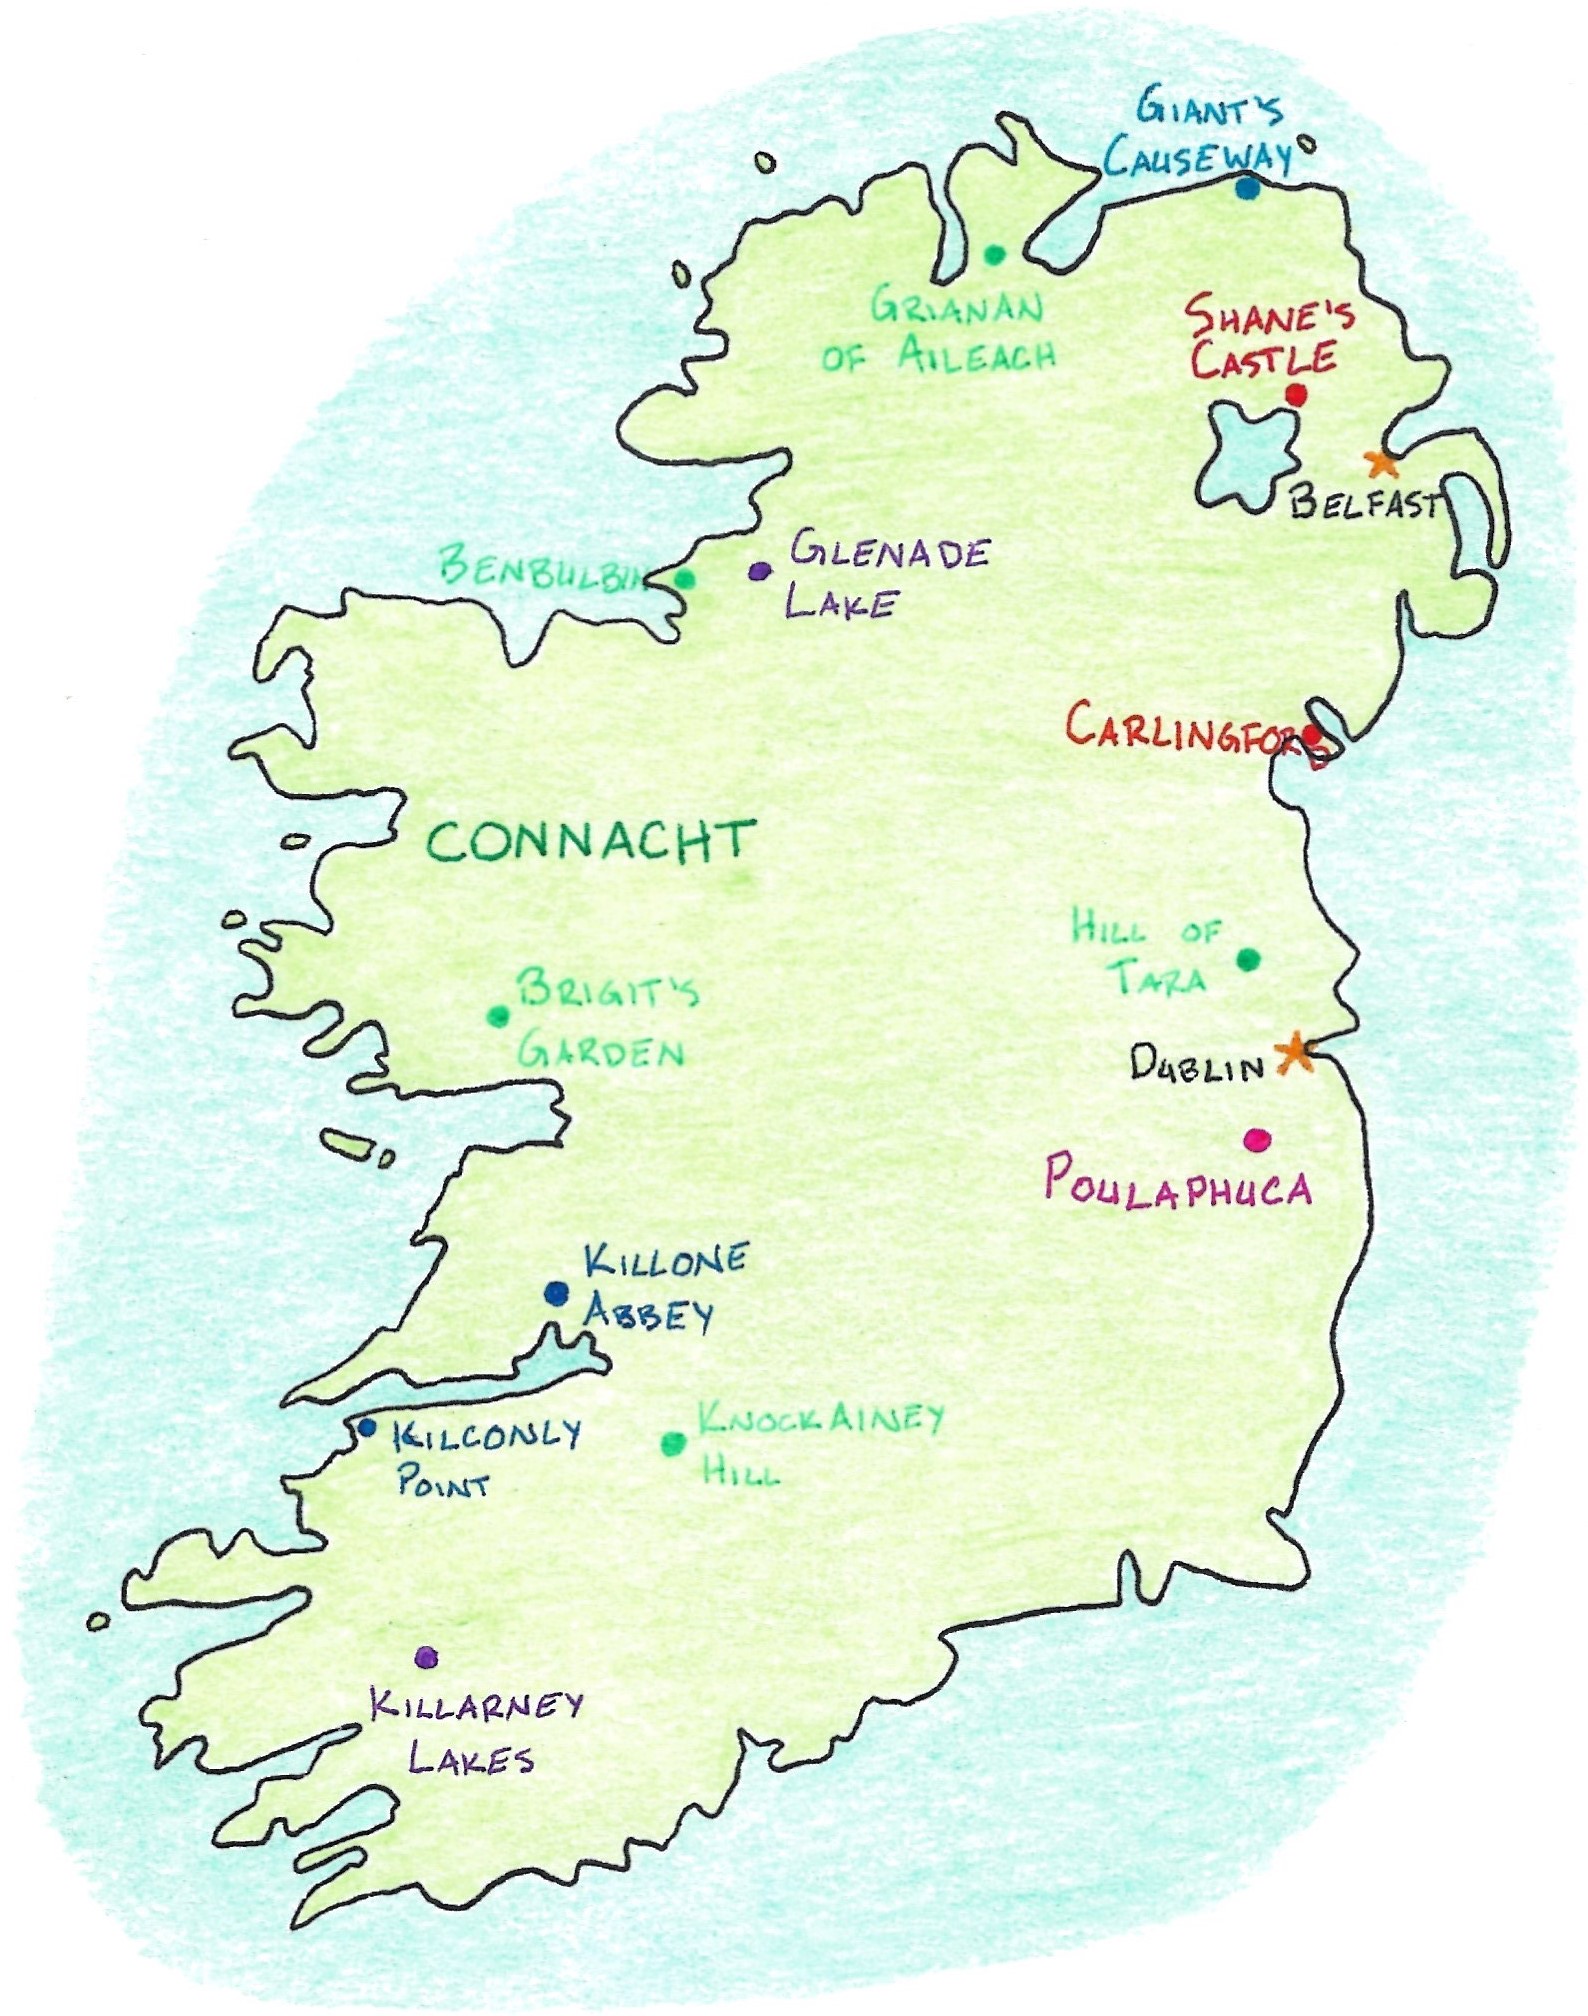 GIANT'S
CAUSEWAY
GRIANAN
OF AILEACH
SHANE'S
CASTLE
BELFAST
BENBULBIN
GLENADE
LAKE
CARLINGFORD
CONNACHT
HILL OF
TARA
BRIGIT'S
GARDEN
DUBLIN
POULAPHUCA
KILLONE
ABBEY
KILCONLY
POINT
KNOCKAINEY
HILL
KILLARNEY
LAKES